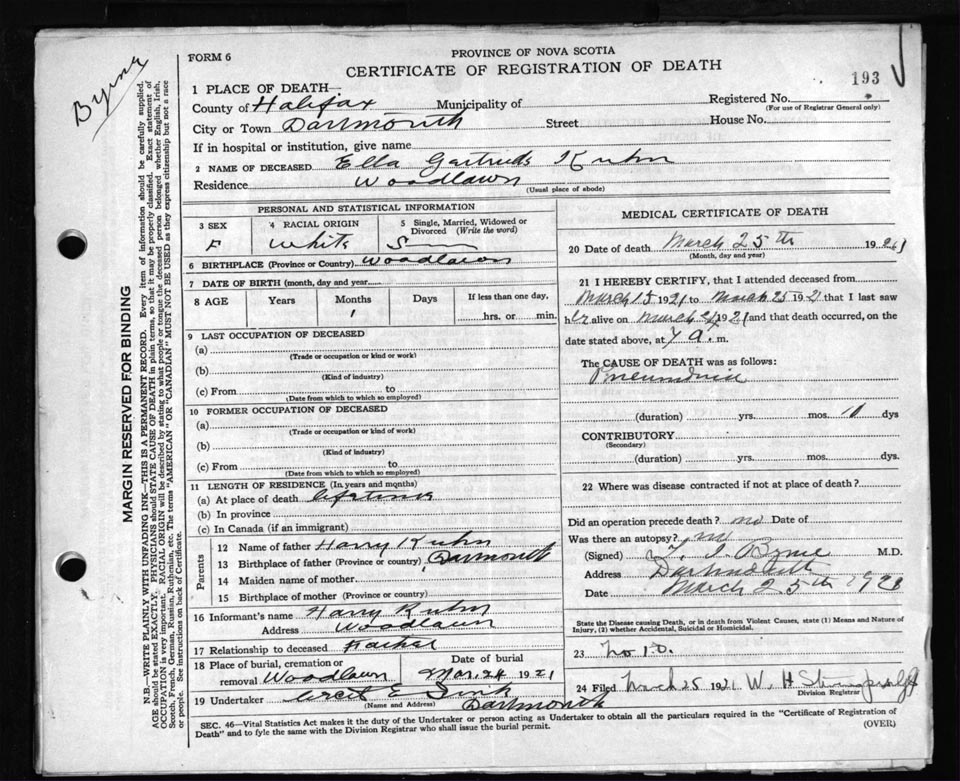 Byrne
FORM 6
PROVINCE OF NOVA SCOTIA
CERTIFICATE OF REGISTRATION OF DEATH
193
1 PLACE OF DEATH—
County of Halifax Municipality of Registered No.
(For use of Registrar General only)
City or Town Dartmouth Street House No.
If in hospital or institution, give name
2 NAME OF DECEASED Ella Gertrude Kuhn
Residence Woodlawn
(Usual place of abode)
PERSONAL AND STATISTICAL INFORMATION
3 SEX 4 RACIAL ORIGIN 5 Single, Married, Widowed or Divorced (Write the word)
F White S
6 BIRTHPLACE (Province or Country) Woodlawn
7 DATE OF BIRTH (month, day and year)
8 AGE Years Months Days If less than one day,
1 hrs. or min.
9 LAST OCCUPATION OF DECEASED
(a)
(Trade or occupation or kind or work)
(b)
(Kind of industry)
(c) From to
(Date from which to which so employed)
10 FORMER OCCUPATION OF DECEASED
(a)
(Trade or occupation or kind of work)
(b)
(Kind of industry)
(c) From to
(Date from which to which so employed)
11 LENGTH OF RESIDENCE (In years and months)
(a) At place of death lifetime
(b) In province
(c) In Canada (if an immigrant)
Parents
12 Name of father Harry Kuhn
13 Birthplace of father (Province or country) Dartmouth
14 Maiden name of mother
15 Birthplace of mother (Province or country)
16 Informant's name Harry Kuhn
Address Woodlawn
17 Relationship to deceased Father
18 Place of burial, cremation or removal Woodlawn
Date of burial
Mar. 24 1921
19 Undertaker E
(Name and Address) Dartmouth
MEDICAL CERTIFICATE OF DEATH
20 Date of death March 25th 1921
(Month, day and year)
21 I HEREBY CERTIFY, that I attended deceased from
March 15 1921 to March 25 1921 that I last saw
her alive on March 24 1921 and that death occurred, on the
date stated above, at 7 a. m.
The CAUSE OF DEATH was as follows:
Pneumonia
(duration) yrs. mos. 10 dys
CONTRIBUTORY
(Secondary)
(duration) yrs. mos. dys.
22 Where was disease contracted if not at place of death?
Did an operation precede death? no Date of
Was there an autopsy? no
(Signed) Byrne M.D.
Address Dartmouth
Date March 25th
State the Disease causing Death, or in death from Violent Causes, state (1) Means and Nature of
Injury, (2) whether Accidental, Suicidal or Homicidal.
23 No 10.
24 Filed March 25 1921 W. H.
Division Registrar
SEC. 46—Vital Statistics Act makes it the duty of the Undertaker or person acting as Undertaker to obtain all the particulars required in the "Certificate of Registration of
Death" and to fyle the same with the Division Registrar who shall issue the burial permit. (OVER)
MARGIN RESERVED FOR BINDING
N.B.—WRITE PLAINLY WITH UNFADING INK—THIS IS A PERMANENT RECORD. Every item of information should be carefully supplied.
AGE should be stated EXACTLY. PHYSICIANS should STATE CAUSE OF DEATH in plain terms, so that it may be properly classified. Exact statement of
OCCUPATION is very important. RACIAL ORIGIN will be described by stating to what people or tongue the deceased person belonged whether English, Irish,
Scotch, French, German, Russian, Ruthenian, etc. The terms "AMERICAN" OR "CANADIAN" MUST NOT BE USED as they express citizenship but not a race
or people. See instructions on back of Certificate.